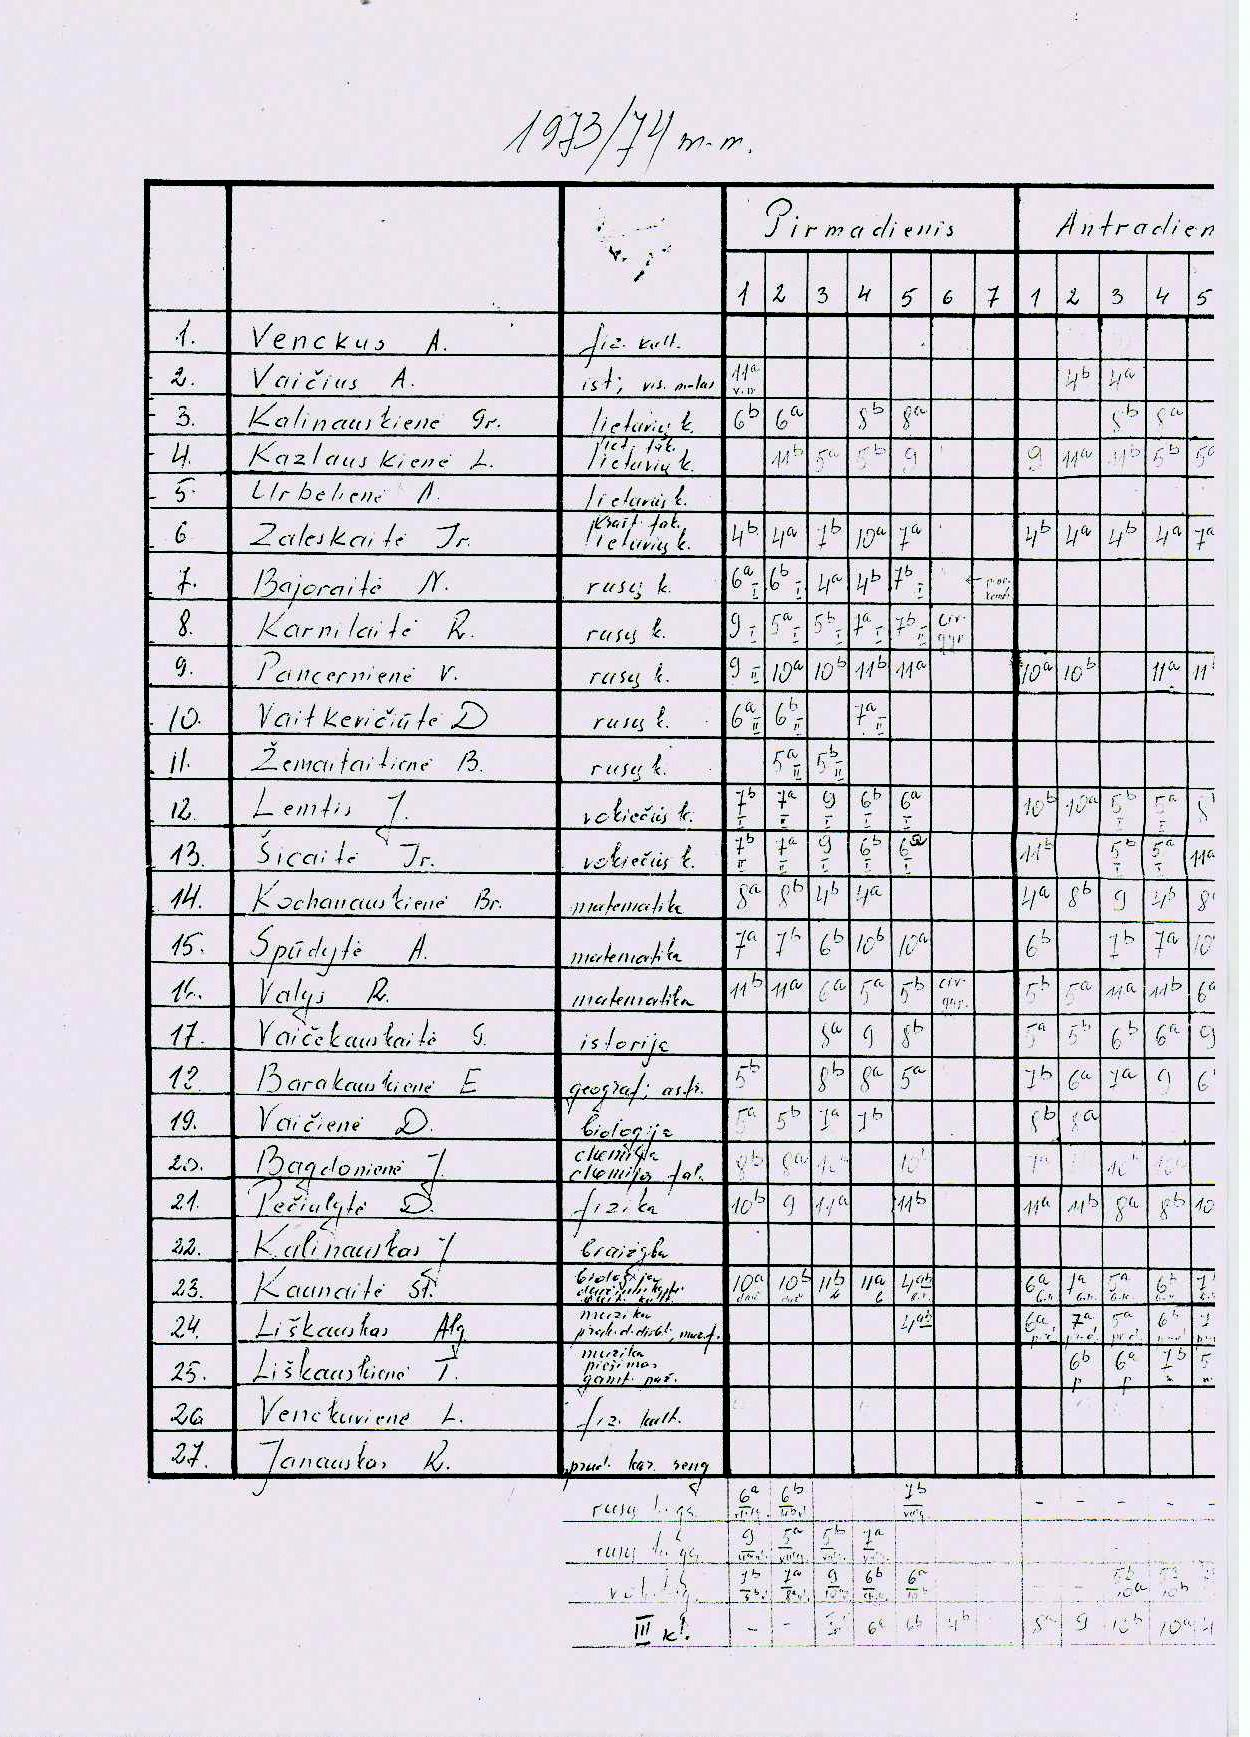 1973/74 m-m.
Pirmadienis Antradien
1 2 3 4 5 6 7 1 2 3 4 5
1. Venckus A. fiz. kult.
2. Vaičius A. ist; vis. m-las 11a 4b 4a
3. Kalinauskienė Gr. lietuvių k. 6b 6a 8b 8a 8b 8a
4. Kazlauskienė L. liet. fak. lietuvių k. 11b 5a 5b 9 9 11a 11b 5b 5a
5. Urbelienė A. lietuvių k.
6 Zaleskaitė Ir. krašt. fak. lietuvių k. 4b 4a 7b 10a 7a 4b 4a 4b 4a 7a
7. Bajoraitė N. rusų k. 6a I 6b I 4a 4b 7b I
8. Karnilaitė R. rusų k. 9 I 5a I 5b I 7a I 7b II civ. gyn.
9. Pancernienė V. rusų k. 9 II 10a 10b 11b 11a 10a 10b 11a 11
10. Vaitkevičiūtė D rusų k. 6a II 6b II 7a II
11. Žemaitaitienė B. rusų k. 5a II 5b II
12. Lemtis J. vokiečių k. 7b I 7a II 9 I 6b I 6a I 10b 10a 5b I 5a I
13. Šicaitė Ir. vokiečių k. 7b II 7a II 9 I 6b I 6a I 11b 5b I 5a I 11a
14. Kochanauskienė Br. matematika 8a 8b 4b 4a 4a 8b 9 4b 8
15. Spūdytė A. matematika 7a 7b 6b 10b 10a 6b 7b 7a 10
16. Valys R. matematika 11b 11a 6a 5a 5b civ. gyn. 5b 5a 11a 11b 6a
17. Vaičekauskaitė G. istorija 8a 9 8b 5a 5b 6b 6a 9
18 Barakauskienė E geograf; astr. 5b 8b 8a 5a 7b 6a 7a 9 6
19. Vaičienė D. biologija 5a 5b 7a 7b 8b 8a
20. Bagdonienė J. chemija chemijos fak. 8b 8a
21. Pečiulytė D. fizika 10b 9 11a 11b 11a 11b 8a 8b 10
22. Kalinauskas J braižyba
23. Kaunaitė St. biologija 10a 10b 11b 11a 4ab 6a 7a 5a 6b 7
24. Liškauskas Alg. muzika 4ab 6a 7a 5a 6b 7
25. Liškauskienė T. muzika piešimas gamt. paž. 6b p 6a p 7b 5
26 Venckuvienė L. fiz. kult.
27. Janauskas R. prad. kar. reng
rusų 6a 6b 7b - - - - -
rusų 9 5a 5b 7a
7b 7a 9 6b 6a - -
III kl. - - 6a 6b 4b 8a 9 10b 10a